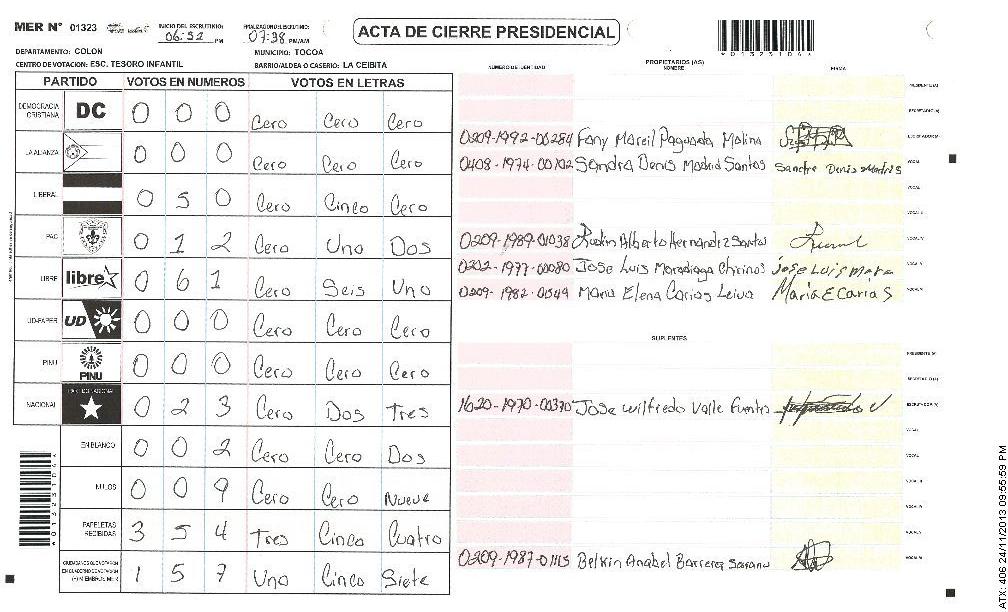 MER Nº 01323
INICIO DEL ESCRUTINIO: 06:52 PM
FINALIZACION DEL ESCRUTINIO: 07:38 PM/AM
ACTA DE CIERRE PRESIDENCIAL
*01323104*
DEPARTAMENTO: COLON
MUNICIPIO: TOCOA
CENTRO DE VOTACION: ESC. TESORO INFANTIL
BARRIO/ALDEA O CASERIO: LA CEIBITA
PARTIDO VOTOS EN NUMEROS VOTOS EN LETRAS
DEMOCRACIA CRISTIANA DC 0 0 0 Cero Cero Cero
LA ALIANZA 0 0 0 Cero Cero Cero
LIBERAL 0 5 0 Cero Cinco Cero
PAC 0 1 2 Cero Uno Dos
LIBRE libre 0 6 1 Cero Seis Uno
UD-FAPER UD 0 0 0 Cero Cero Cero
PINU PINU 0 0 0 Cero Cero Cero
NACIONAL PARTIDO NACIONAL 0 2 3 Cero Dos Tres
EN BLANCO 0 0 2 Cero Cero Dos
NULOS 0 0 9 Cero Cero Nueve
PAPELETAS RECIBIDAS 3 5 4 Tres Cinco Cuatro
CIUDADANOS QUE VOTARON EN CUADERNO DE VOTACION (+) MIEMBROS MER 1 5 7 Uno Cinco Siete
*01323104*
NUMERO DE IDENTIDAD
PROPIETARIOS (AS)
NOMBRE
FIRMA
PRESIDENTE (A)
SECRETARIO (A)
0209-1992-00284 Fany Mareil Paguada Molina ESCRUTADOR (A)
0408-1974-00102 Sandra Denis Madrid Santos Sandra Denis Madrid VOCAL
VOCAL
VOCAL
0209-1989-01038 Alberto Hernandez Santos VOCAL
0202-1977-00080 Jose Luis Moradiaga Chirinos Jose Luis VOCAL
0209-1982-01544 Maria Elena Carias Leiva Maria E Carias VOCAL
SUPLENTES
PRESIDENTE (A)
SECRETARIO (A)
1620-1970-00370 Jose Wilfredo Valle ESCRUTADOR (A)
VOCAL
VOCAL
VOCAL
VOCAL
VOCAL
0209-1987-01115 Belkin Anabel Barrera VOCAL
ATX: 406 24/11/2013 09:55:59 PM